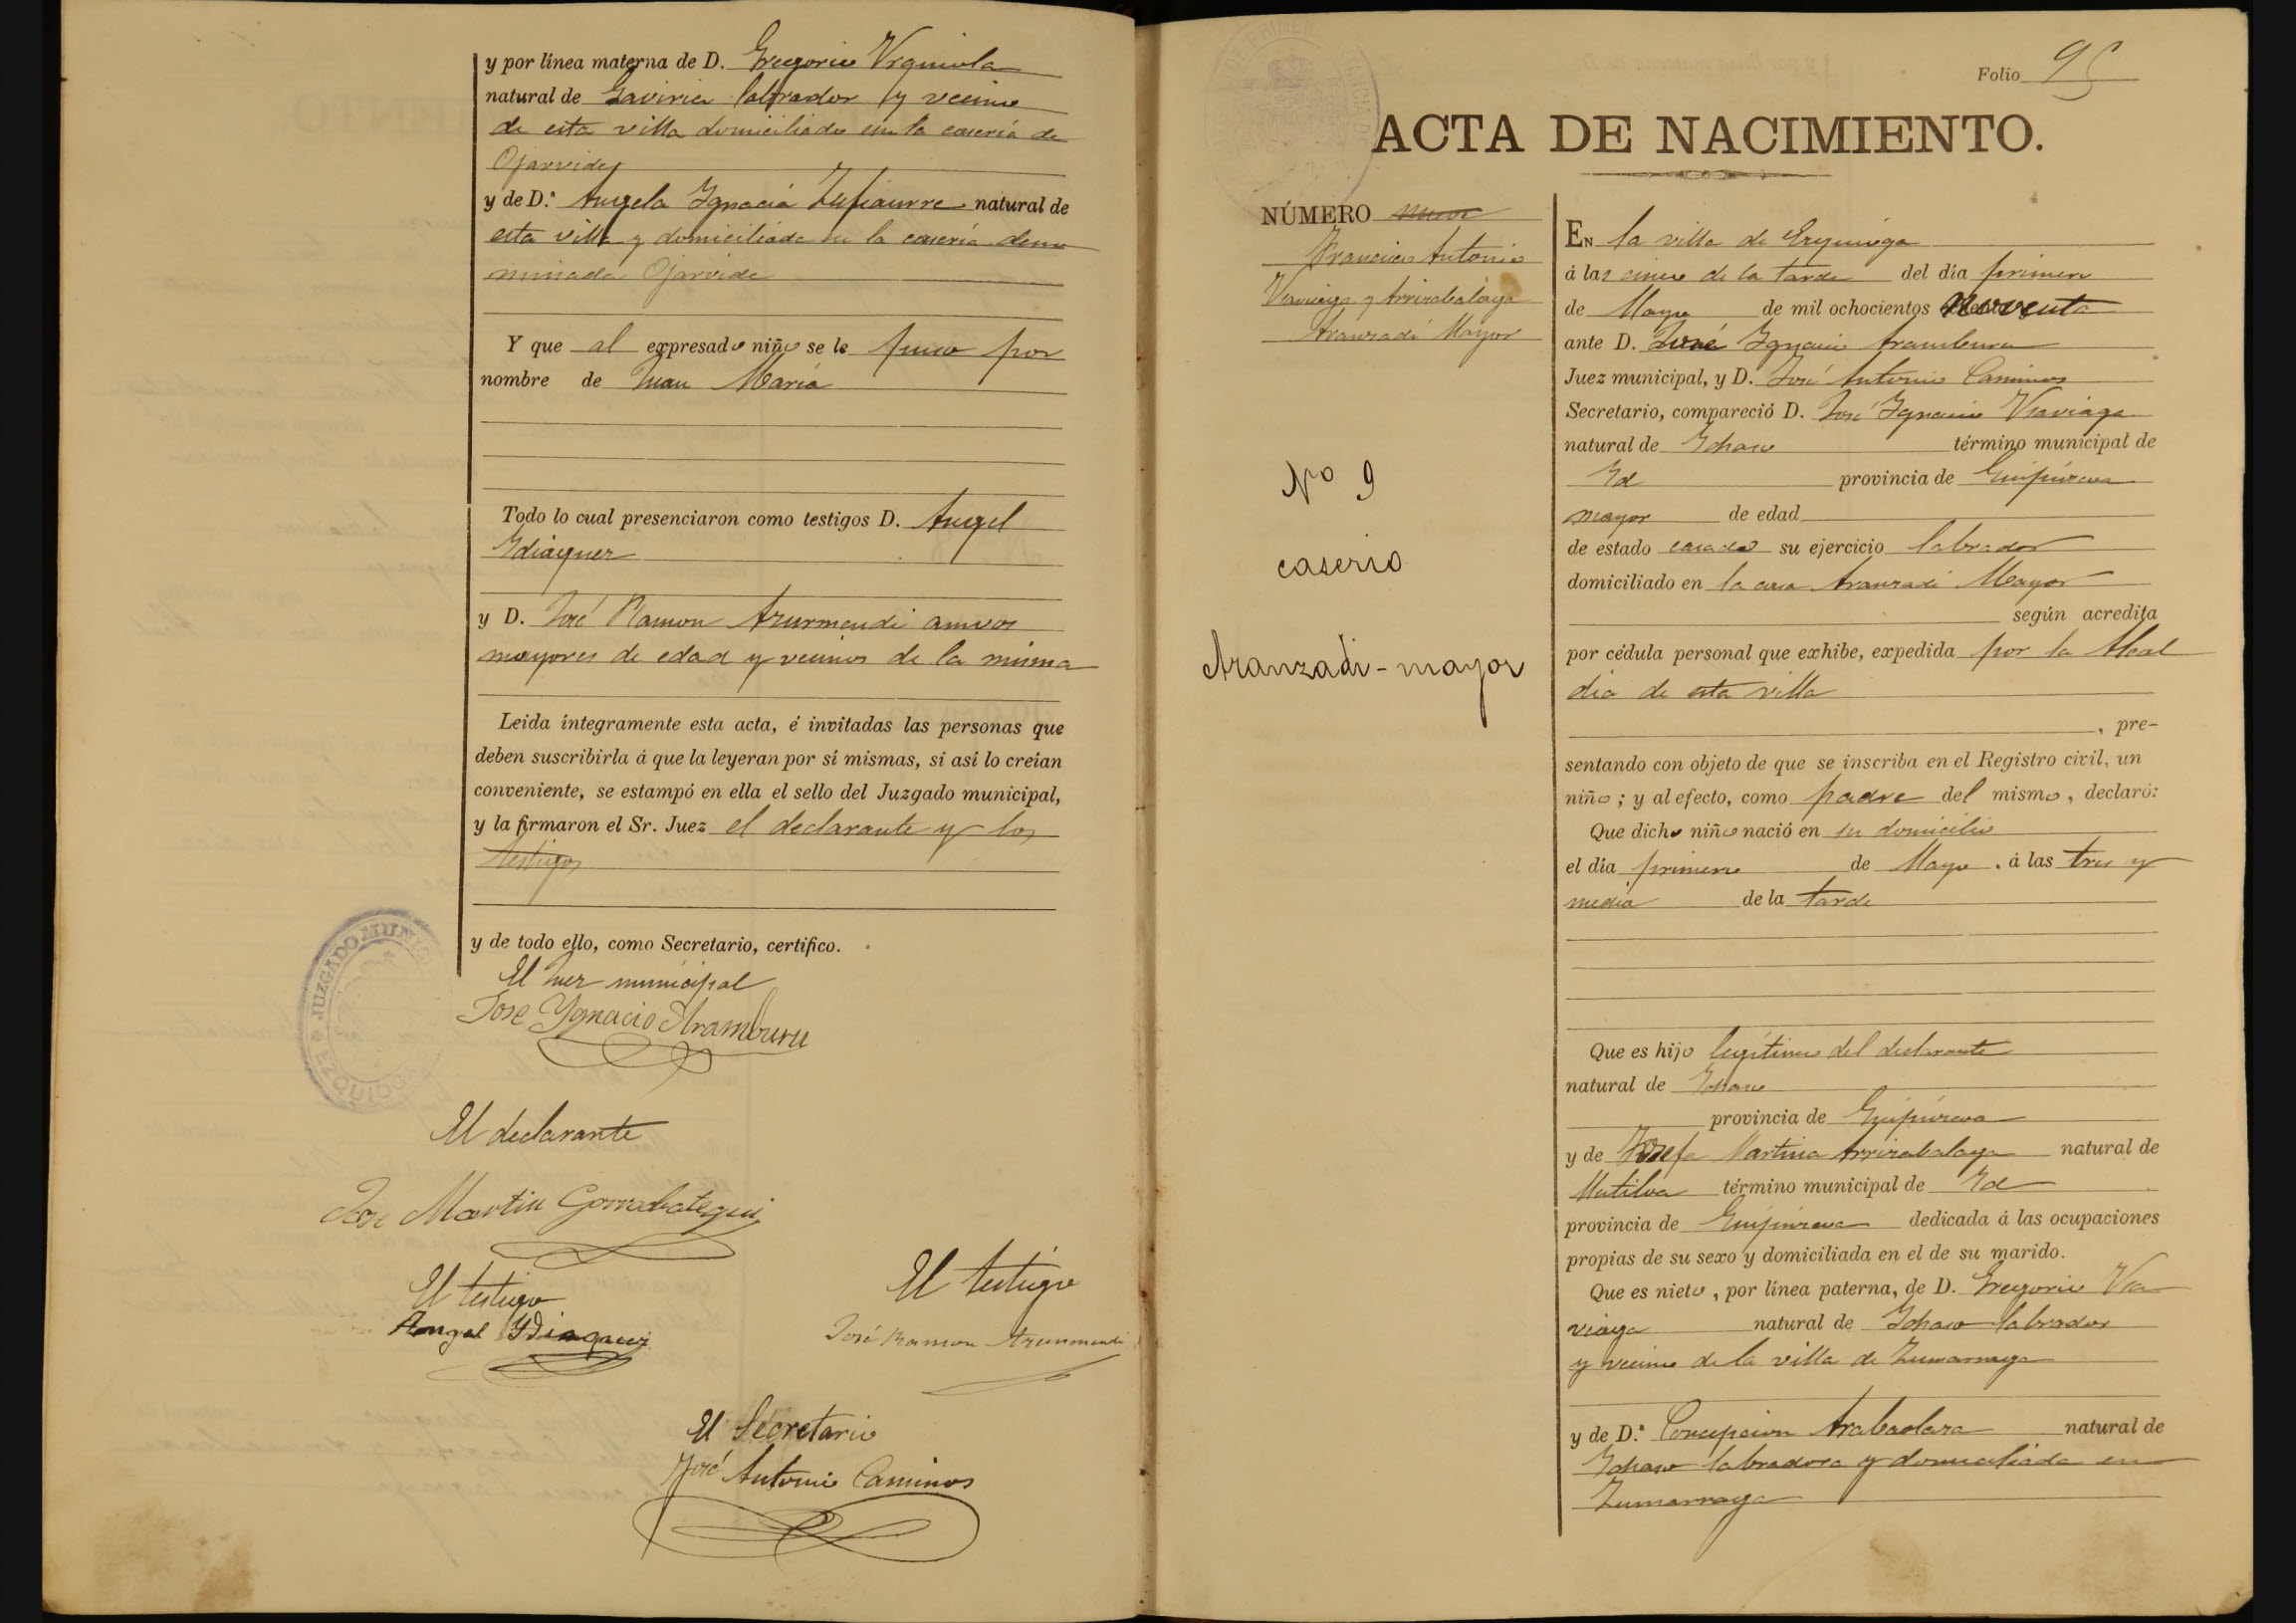 y por línea materna de D. Gregorio Urquiola
natural de Gaviria labrador y vecino
de esta villa domiciliado en la casería de
Ojarvide
y de D.ª Angela Ygnacia Zufiaurre natural de
esta villa y domiciliada en la casería deno
minada Ojarvide
Y que al expresado niño se le puso por
nombre de Juan María
Todo lo cual presenciaron como testigos D. Angel
Ydiaquez
y D. José Ramon Azurmendi amvos
mayores de edad y vecinos de la misma
Leida íntegramente esta acta, é invitadas las personas que
deben suscribirla á que la leyeran por sí mismas, si así lo creían
conveniente, se estampó en ella el sello del Juzgado municipal,
y la firmaron el Sr. Juez el declarante y los
testigos
y de todo ello, como Secretario, certifico.
JUZGADO MUNICI
EZQUIOGA
El Juez municipal
Jose Ygnacio Aramburu
El declarante
Jose Martin Gorrochategui
El testigo
Angel Ydiaquez
El testigo
José Ramon Azurmendi
El Secretario
José Antonio Caminos
Folio 95
ACTA DE NACIMIENTO.
NÚMERO nueve
Francisco Antonio
Arrizabalaga
Aranzadi Mayor
Nº 9
caserio
Aranzadi-mayor
EN la villa de Ezquioga
á las cinco de la tarde del día primero
de Mayo de mil ochocientos noventa
ante D. José Ygnacio Aramburu
Juez municipal, y D. José Antonio Caminos
Secretario, compareció D. José Ygnacio
natural de Ychaso término municipal de
Yd provincia de Guipúzcoa
mayor de edad
de estado casado su ejercicio labrador
domiciliado en la casa Aranzadi Mayor
según acredita
por cédula personal que exhibe, expedida por la Alcal
dia de esta villa
, pre-
sentando con objeto de que se inscriba en el Registro civil, un
niño; y al efecto, como padre del mismo, declaró:
Que dicho niño nació en su domicilio
el día primero de Mayo á las tres y
media de la tarde
Que es hijo legítimo del declarante
natural de Ychaso
provincia de Guipúzcoa
y de Josefa Martina Arrizabalaga natural de
Mutiloa término municipal de Yd
provincia de Guipúzcoa dedicada á las ocupaciones
propias de su sexo y domiciliada en el de su marido.
Que es nieto, por línea paterna, de D. Gregorio
natural de Ychaso labrador
y vecino de la villa de Zumarraga
y de D.ª Concepcion Arabaolaza natural de
Ychaso labradora y domiciliada en
Zumarraga